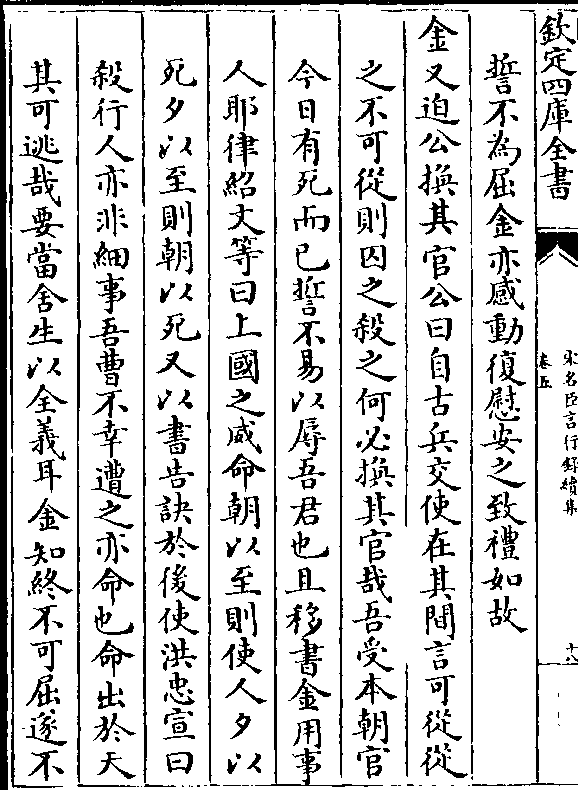 欽定四庫全書
宋名臣言行錄續集
卷五
十八
誓不為屈金亦感動復慰安之致禮如故
金又迫公換其官公曰自古兵交使在其間言可從從
之不可從則囚之殺之何必換其官哉吾受本朝官
今日有死而已誓不易以辱吾君也且移書金用事
人耶律紹文等曰上國之威命朝以至則使人夕以
死夕以至則朝以死又以書告訣於後使洪忠宣曰
殺行人亦非細事吾曹不幸遭之亦命也命出於天
其可逃哉要當舍生以全義耳金知終不可屈遂不